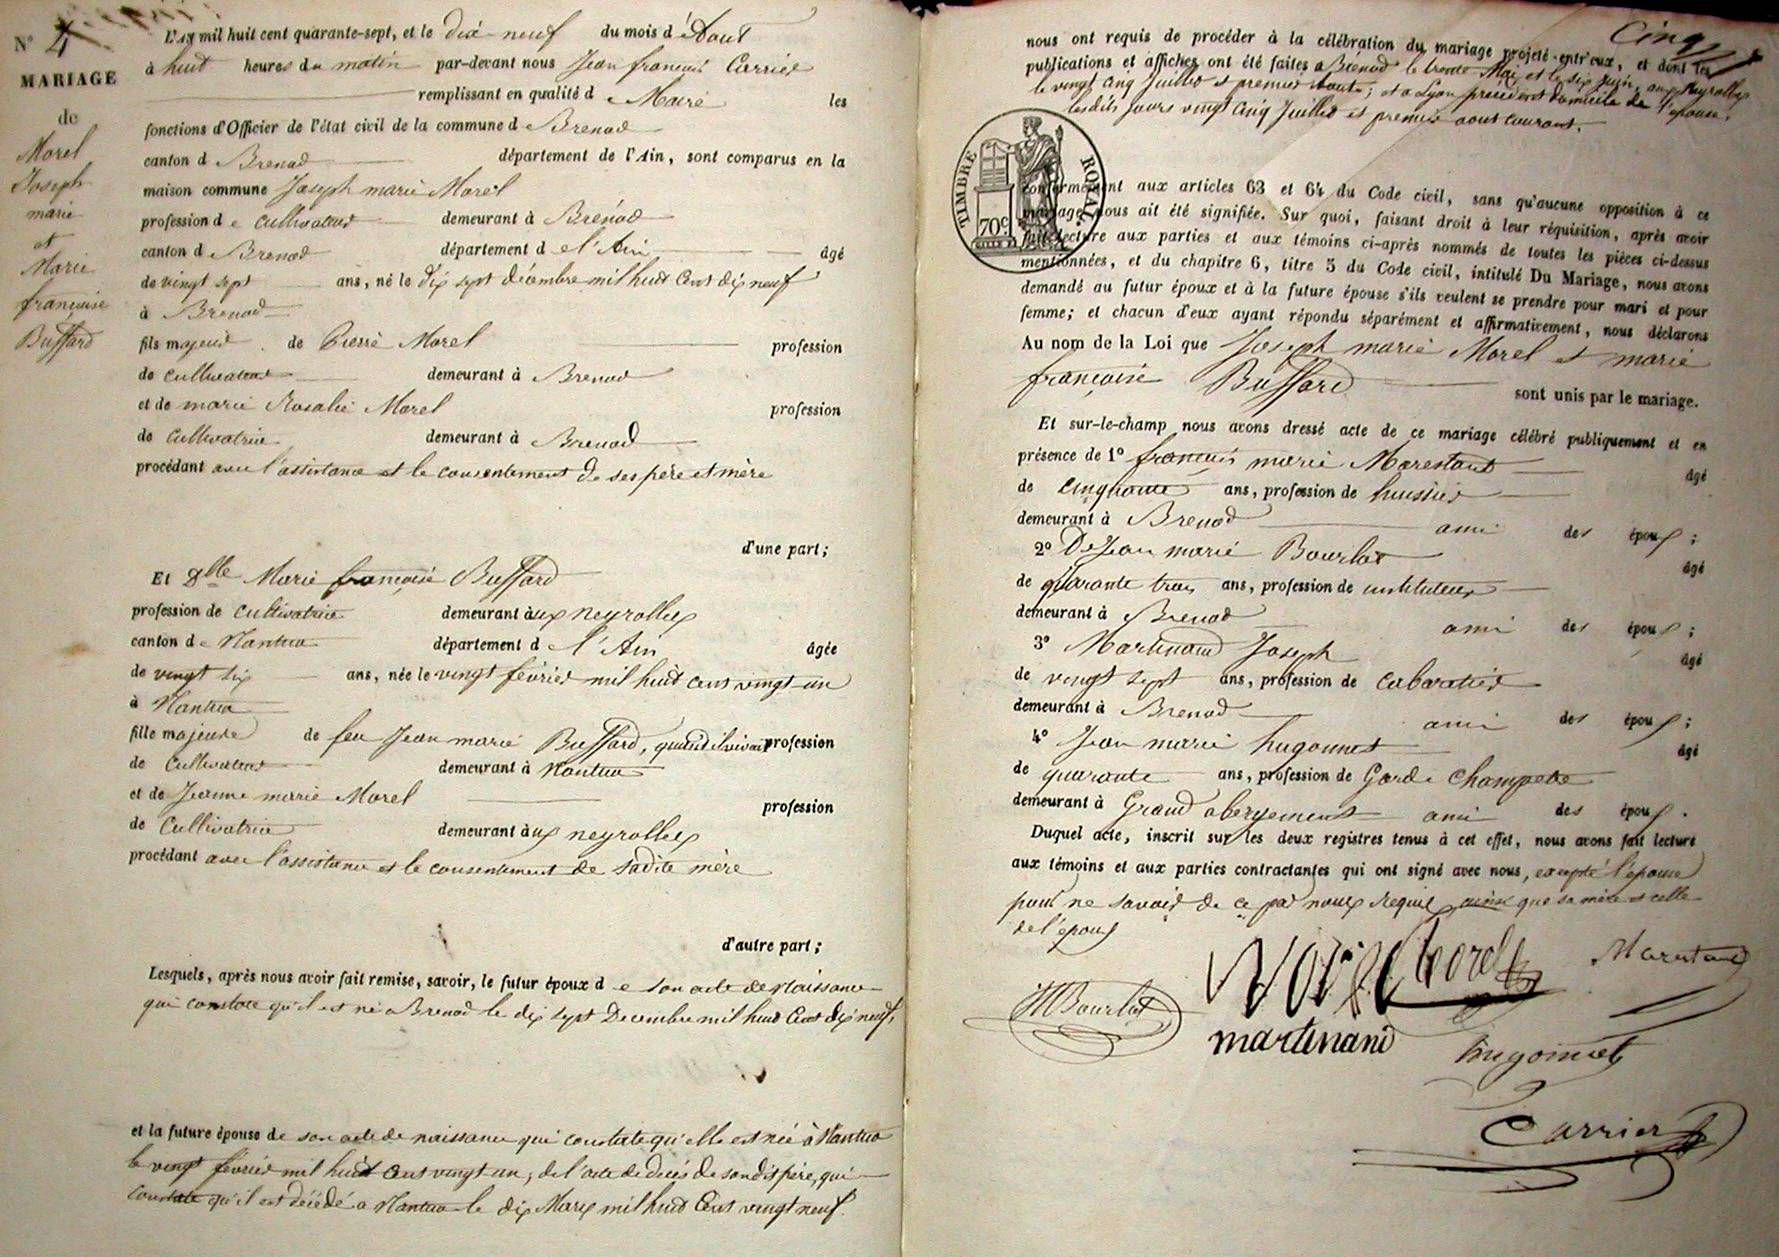 N° 4
MARIAGE
de
Morel
Joseph
marie
et
Marie
françoise
Buffard
L'An mil huit cent quarante-sept, et le dix-neuf du mois d'Aout
à huit heures du matin par-devant nous Jean françois Carrier
remplissant en qualité de Maire les
fonctions d'Officier de l'état civil de la commune d Brenod
canton d Brenod département de l'Ain, sont comparus en la
maison commune Joseph marie Morel
profession de cultivateur demeurant à Brénod
canton de Brenod département de l'Ain âgé
de vingt sept ans, né le dix sept décembre mil huit cent dix neuf
à Brenod
fils majeur de Pierre Morel profession
de cultivateur demeurant à Brenod
et de marie Rosalie Morel profession
de cultivatrice demeurant à Brenod
procédant avec l'assistance et le consentement de ses père et mère
d'une part;
Et Dlle Marie françoise Buffard
profession de cultivatrice demeurant aux neyrolles
canton de Nantua département de l'Ain âgée
de vingt six ans, née le vingt février mil huit cent vingt-un
à Nantua
fille majeure de feu Jean marie Buffard, quand il vivait profession
de cultivateur demeurant à Nantua
et de Jeanne marie Morel profession
de cultivatrice demeurant aux neyrolles
procédant avec l'assistance et le consentement de sadite mère
d'autre part;
Lesquels, après nous avoir fait remise, savoir, le futur époux de son acte de Naissance
qui constate qu'il est né à Brenod le dix sept Decembre mil huit Cent dix neuf,
et la future épouse de son acte de naissance qui constate qu'elle est née à Nantua
le vingt février mil huit cent vingt un, de l'acte de décès de son dit père, qui
constate qu'il est décédé a Nantua le dix Mars mil huit Cent vingt neuf.
Cinq
nous ont requis de procéder à la célébration du mariage projeté entr'eux, et dont les
publications et affiches ont été faites a Brenod le trente Mai et le six Juin, aux Neyrolles
le vingt cinq Juillet et premier Aout; et a Lyon précédent domicile de l'épouse,
les dits jours vingt cinq Juillet et premier aout courant.
TIMBRE ROYAL
70c
conformément aux articles 63 et 64 du Code civil, sans qu'aucune opposition à ce
mariage nous ait été signifiée. Sur quoi, faisant droit à leur réquisition, après avoir
fait lecture aux parties et aux témoins ci-après nommés de toutes les pièces ci-dessus
mentionnées, et du chapitre 6, titre 5 du Code civil, intitulé Du Mariage, nous avons
demandé au futur époux et à la future épouse s'ils veulent se prendre pour mari et pour
femme; et chacun d'eux ayant répondu séparément et affirmativement, nous déclarons
Au nom de la Loi que Joseph marie Morel et marie
françoise Buffard sont unis par le mariage.
Et sur-le-champ nous avons dressé acte de ce mariage célébré publiquement et en
présence de 1° françois marie Marestant âgé
de cinquante ans, profession de huissier
demeurant à Brenod ami des époux;
2° De Jean marie Bourlot âgé
de quarante trois ans, profession de instituteur
demeurant à Brenod ami des époux;
3° Martinand Joseph âgé
de vingt sept ans, profession de cabaretier
demeurant à Brenod ami des époux;
4° Jean marie hugonnet âgé
de quarante ans, profession de Garde Champetre
demeurant à Grand abergement ami des époux.
Duquel acte, inscrit sur les deux registres tenus à cet effet, nous avons fait lecture
aux témoins et aux parties contractantes qui ont signé avec nous, excepté l'épouse
pour ne savoir de ce par nous requis ainsi que sa mère et celle
de l'époux
Morel
Marestant
JMBourlot
martinand
hugonnet
Carrier